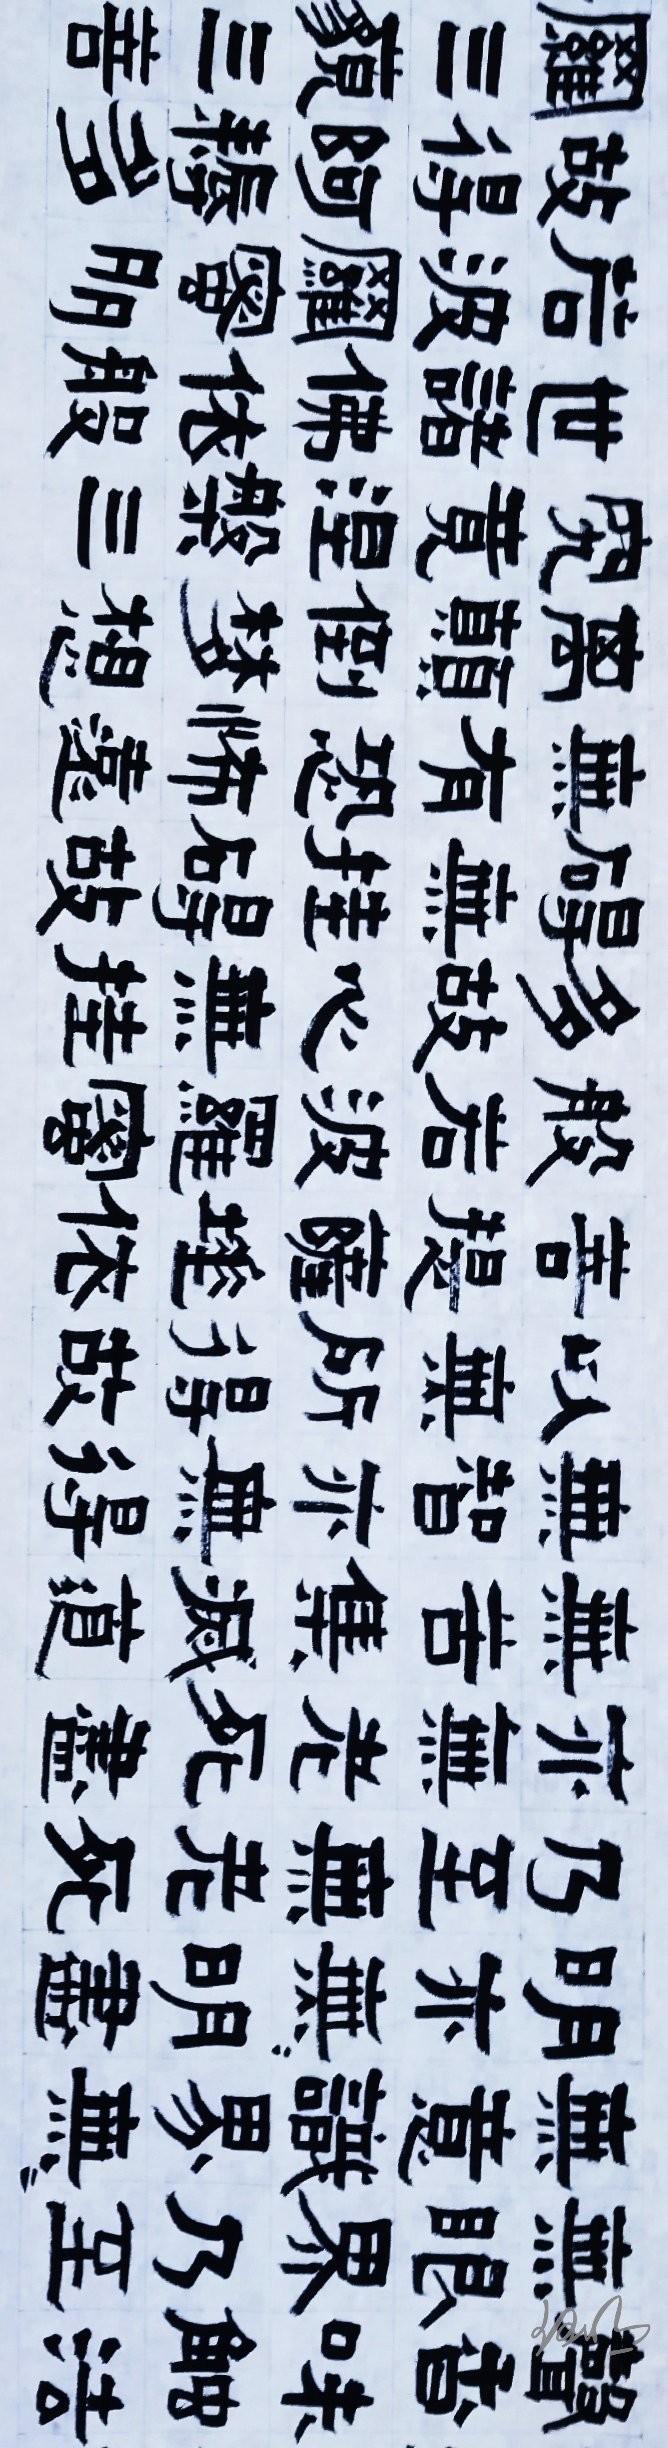 聲香味觸法
無眼界乃至
無意識界無
明亦無明盡
乃至無老死
亦無老死盡
無苦集滅道
無智亦無得
以無所得故
菩提薩埵依
般若波羅蜜
多故心無挂
礙無挂礙故
無有恐怖遠
離顛倒夢想
究竟涅槃三
世諸佛依般
若波羅蜜多
故得阿耨多
羅三藐三菩